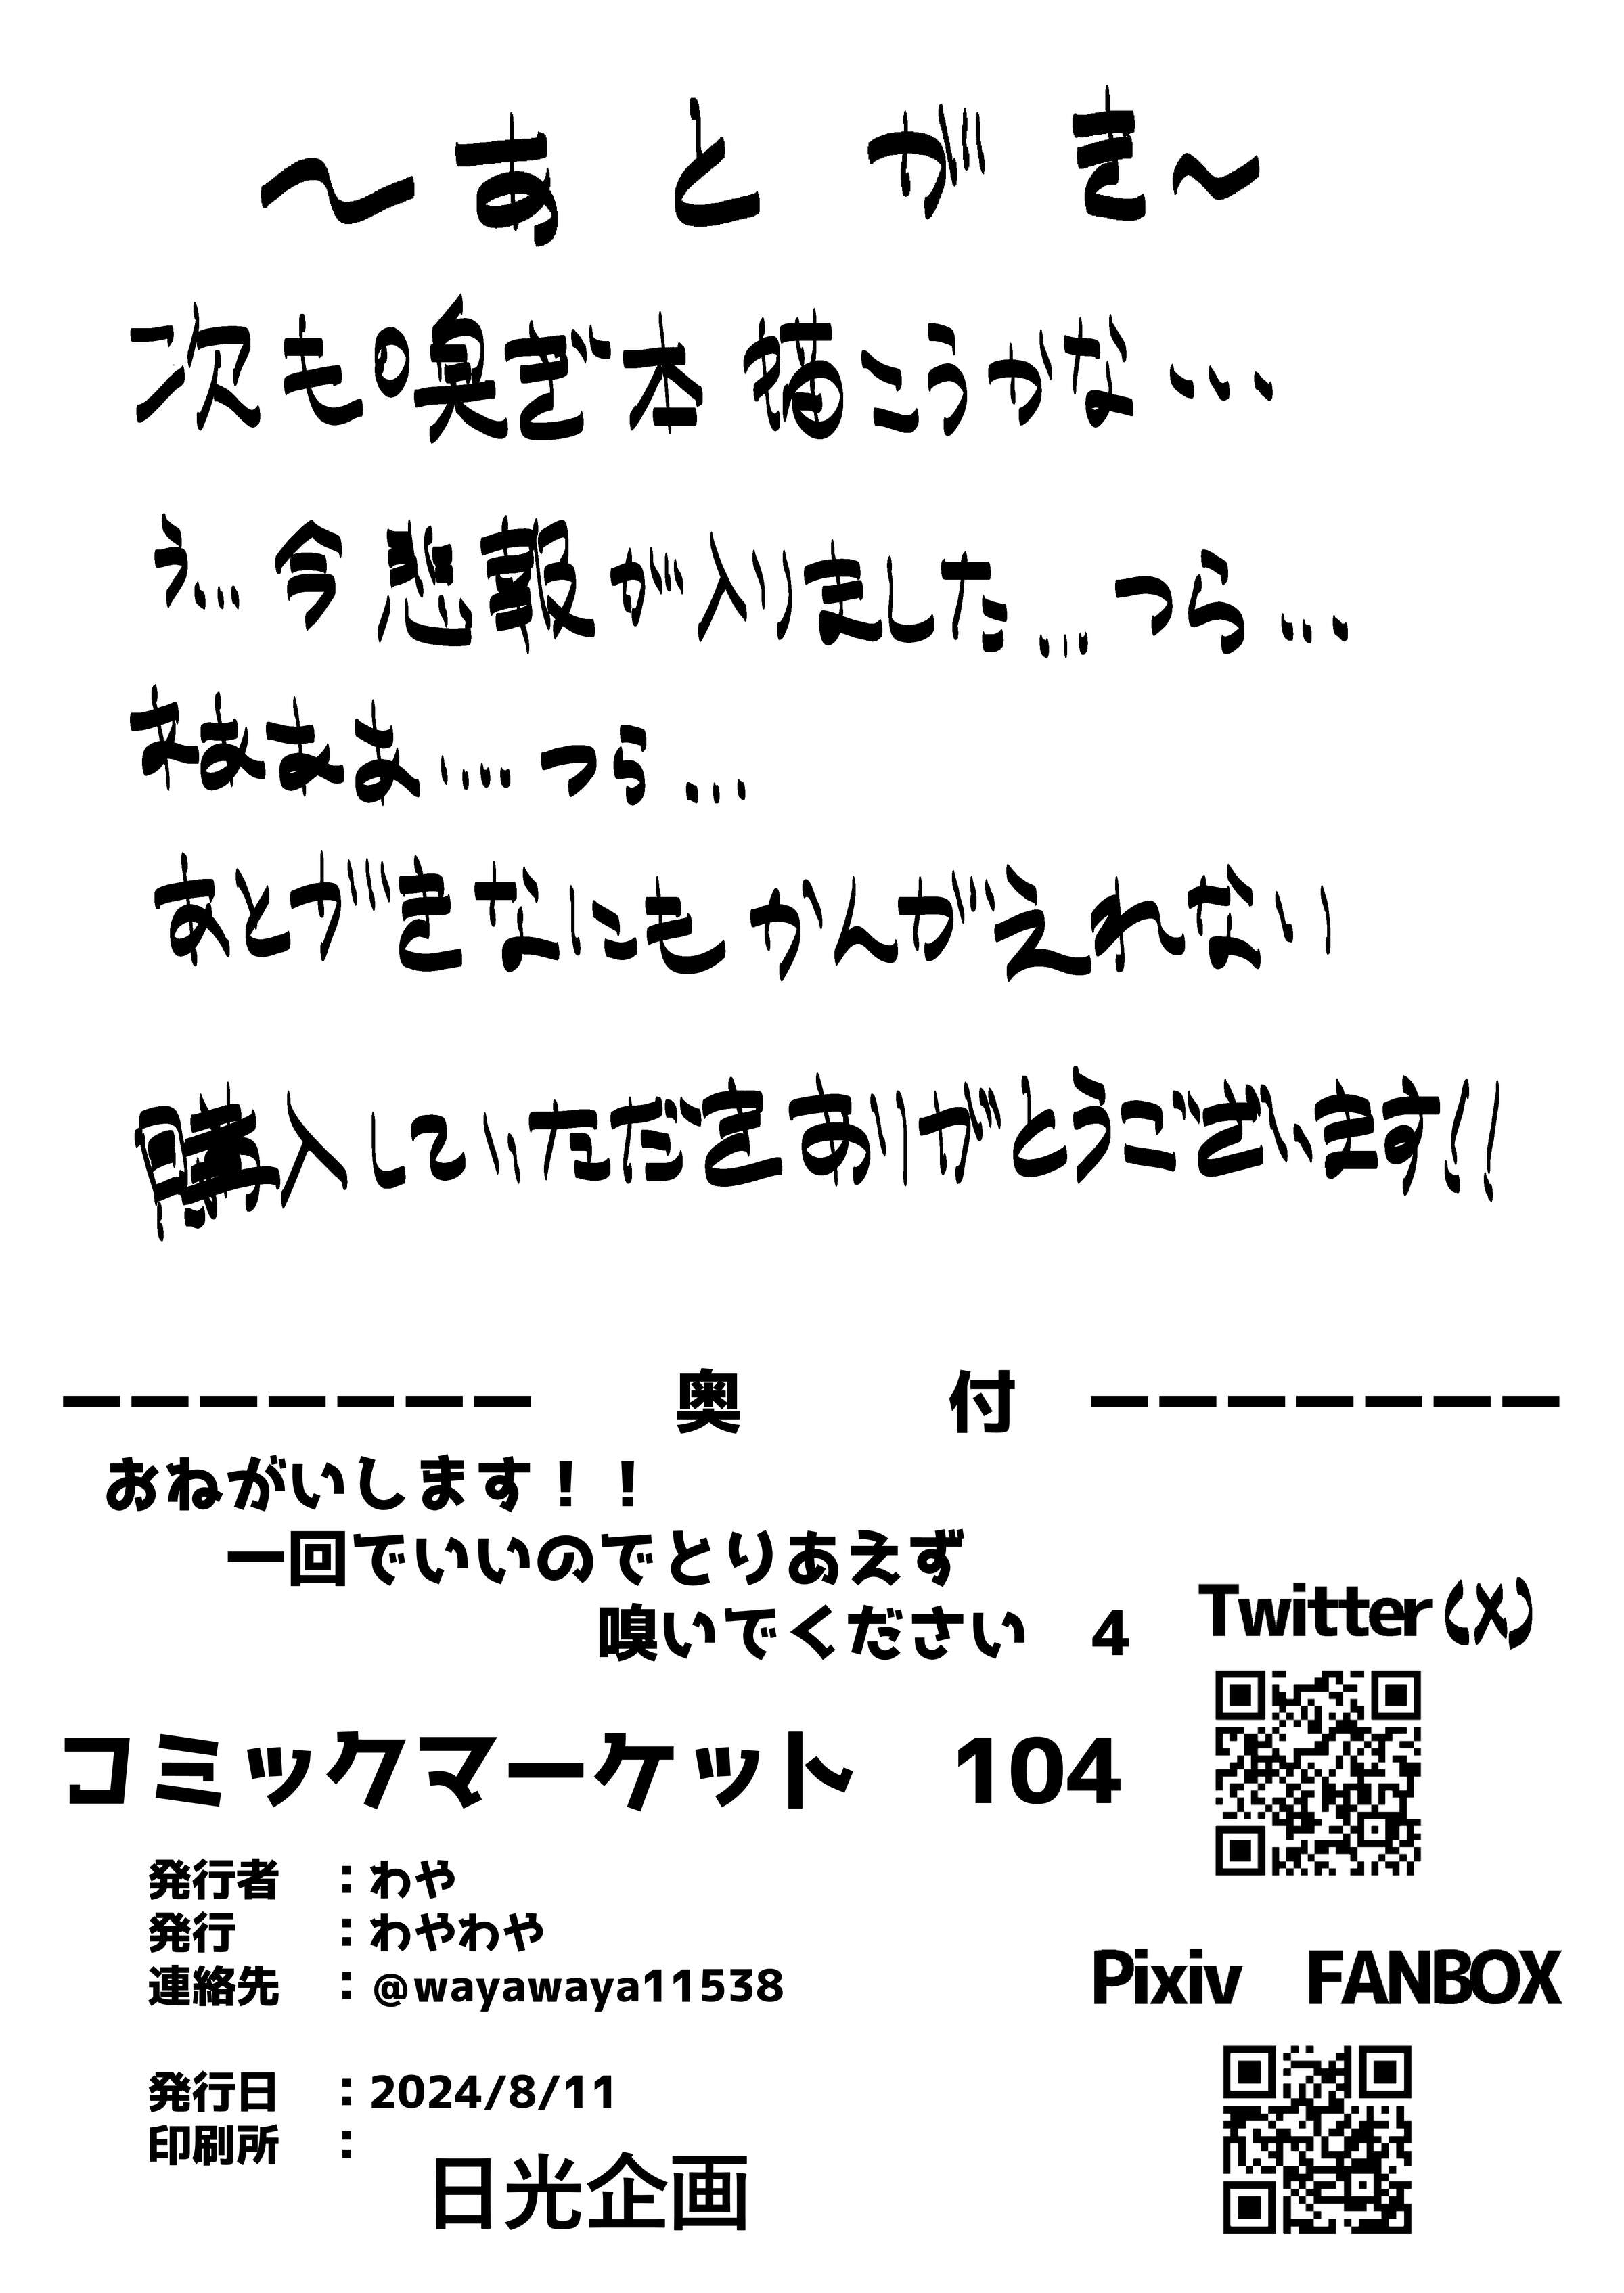 ～あとがき～
次も嗅ぎ本描こうかな…
ぅ…今悲報が入りました…つら…
あとがきなにもかんがえれない
購入していただきありがとうございます!!
ーーーーーーー 奥 付 ーーーーーーー
おねがいします！！
一回でいいのでとりあえず
嗅いでください 4
Twitter(X)
コミックマーケット 104
発行者 ：わや
発行 ：わやわや
連絡先 ：@wayawaya11538
Pixiv FANBOX
発行日 ：2024/8/11
印刷所 ：
日光企画